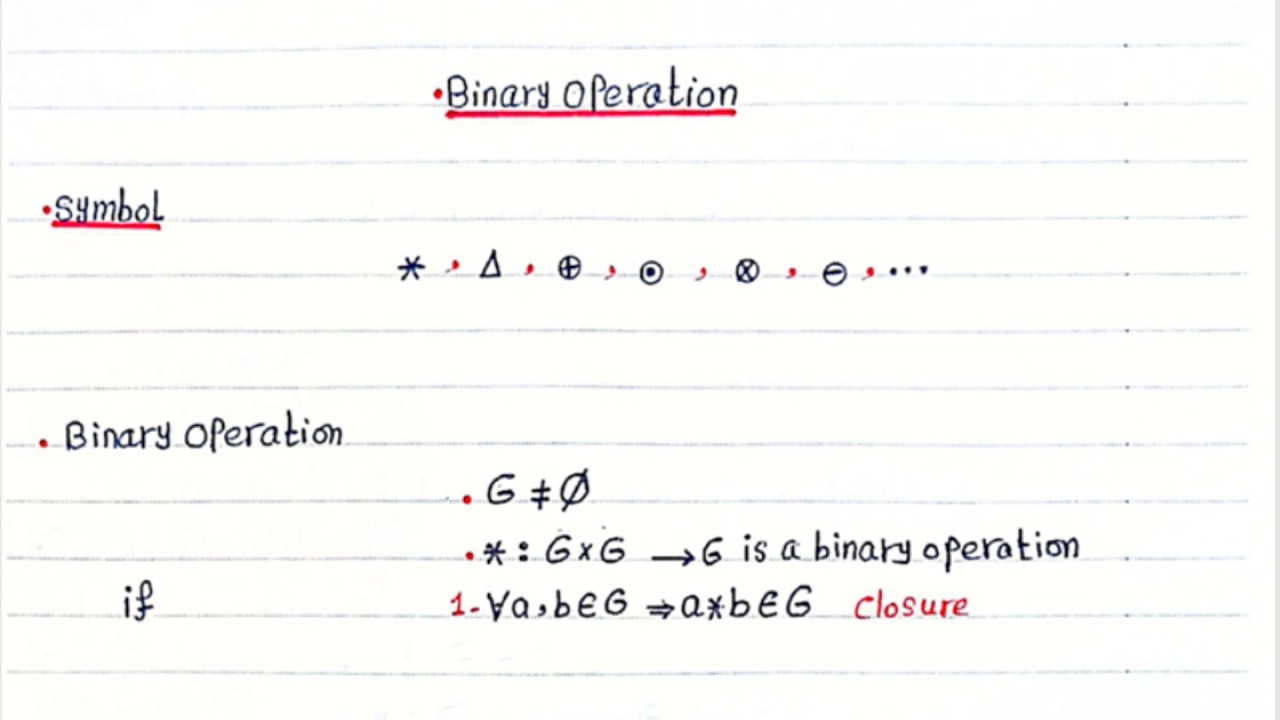 •Binary Operation
•Symbol
* , Δ , ⊕ , ⊙ , ⊗ , ⊖ , ...
• Binary Operation
• G ≠ Ø
• * : G×G → G is a binary operation
if 1- ∀a,b∈G ⇒ a*b∈G Closure